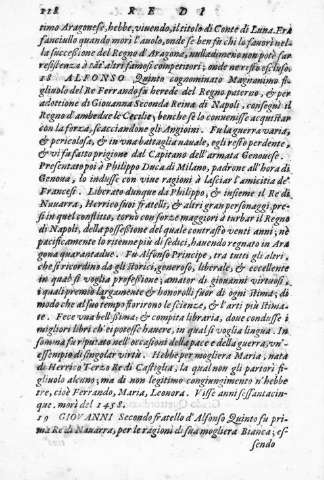 118 R E D I
timo Aragonese, hebbe, viuendo, il titolo di Conte di Luna. Era
fanciullo quando morì l'auolo, onde se ben fù chi lo fauorì nel-
la successione del Regno d'Aragona, nulladimeno non potè far
resistenza à tāti altri famosi competitori, onde ne restò escluso.
18 ALFONSO Quinto cognominato Magnanimo fi-
gliuolo del Re Ferrando fù herede del Regno paterno, & per
adottione di Giouanna Seconda Reina di Napoli, conseguì il
Regno d'ambedue le Cecilie, benche se lo conuenisse acquistar
con la forza, scacciandone gli Angioini. Fu la guerra varia,
& pericolosa, & in vna battaglia nauale, egli restò perdente,
& vi fu fatto prigione dal Capitano dell'armata Genouese.
Presentato poi à Philippo Duca di Milano, padrone all'hora di
Genoua, lo indusse con viue ragioni à lasciar l'amicitia de'
Francesi. Liberato dunque da Philippo, & insieme il Re di
Nauarra, Herrico suoi fratelli, & altri gran personaggi pre-
si in quel conflitto, tornò con forze maggiori à turbar il Regno
di Napoli, della possessione del quale contrastò venti anni; nè
pacificamente lo ritenne più di sedici, hauendo regnato in Ara
gona quarantadue. Fu Alfonso Principe, tra tutti gli altri,
che si ricordino da gli Storici, generoso, liberale, & eccellente
in qual si voglia professione; amator di giouanni virtuosi,
i quali premiò largamente & honorolli fuor di ogni stima; di
modo che al suo tempo fiorirono le scienze, & l'arti più stima-
te. Fece vna bellissima, & compita libraria, doue condusse i
migliori libri ch'ei potesse hauere, in qual si voglia lingua. In
somma fu riputato nell'occasioni della pace e della guerra, vn'-
essempio di singolar virtù. Hebbe per mogliera Maria, nata
di Herrico Terzo Re di Castiglia, la qual non gli partorì fi-
gliuolo alcuno, ma di non legittimo congiungimento n'hebbe
tre, cioè Ferrando, Maria, Leonora. Visse anni sessantacin-
que. morì del 1458.
19 GIOVANNI Secondo fratello d'Alfonso Quinto fu pri-
ma Re di Nauarra, per le ragioni di sua mogliera Bianca; es-
sendo